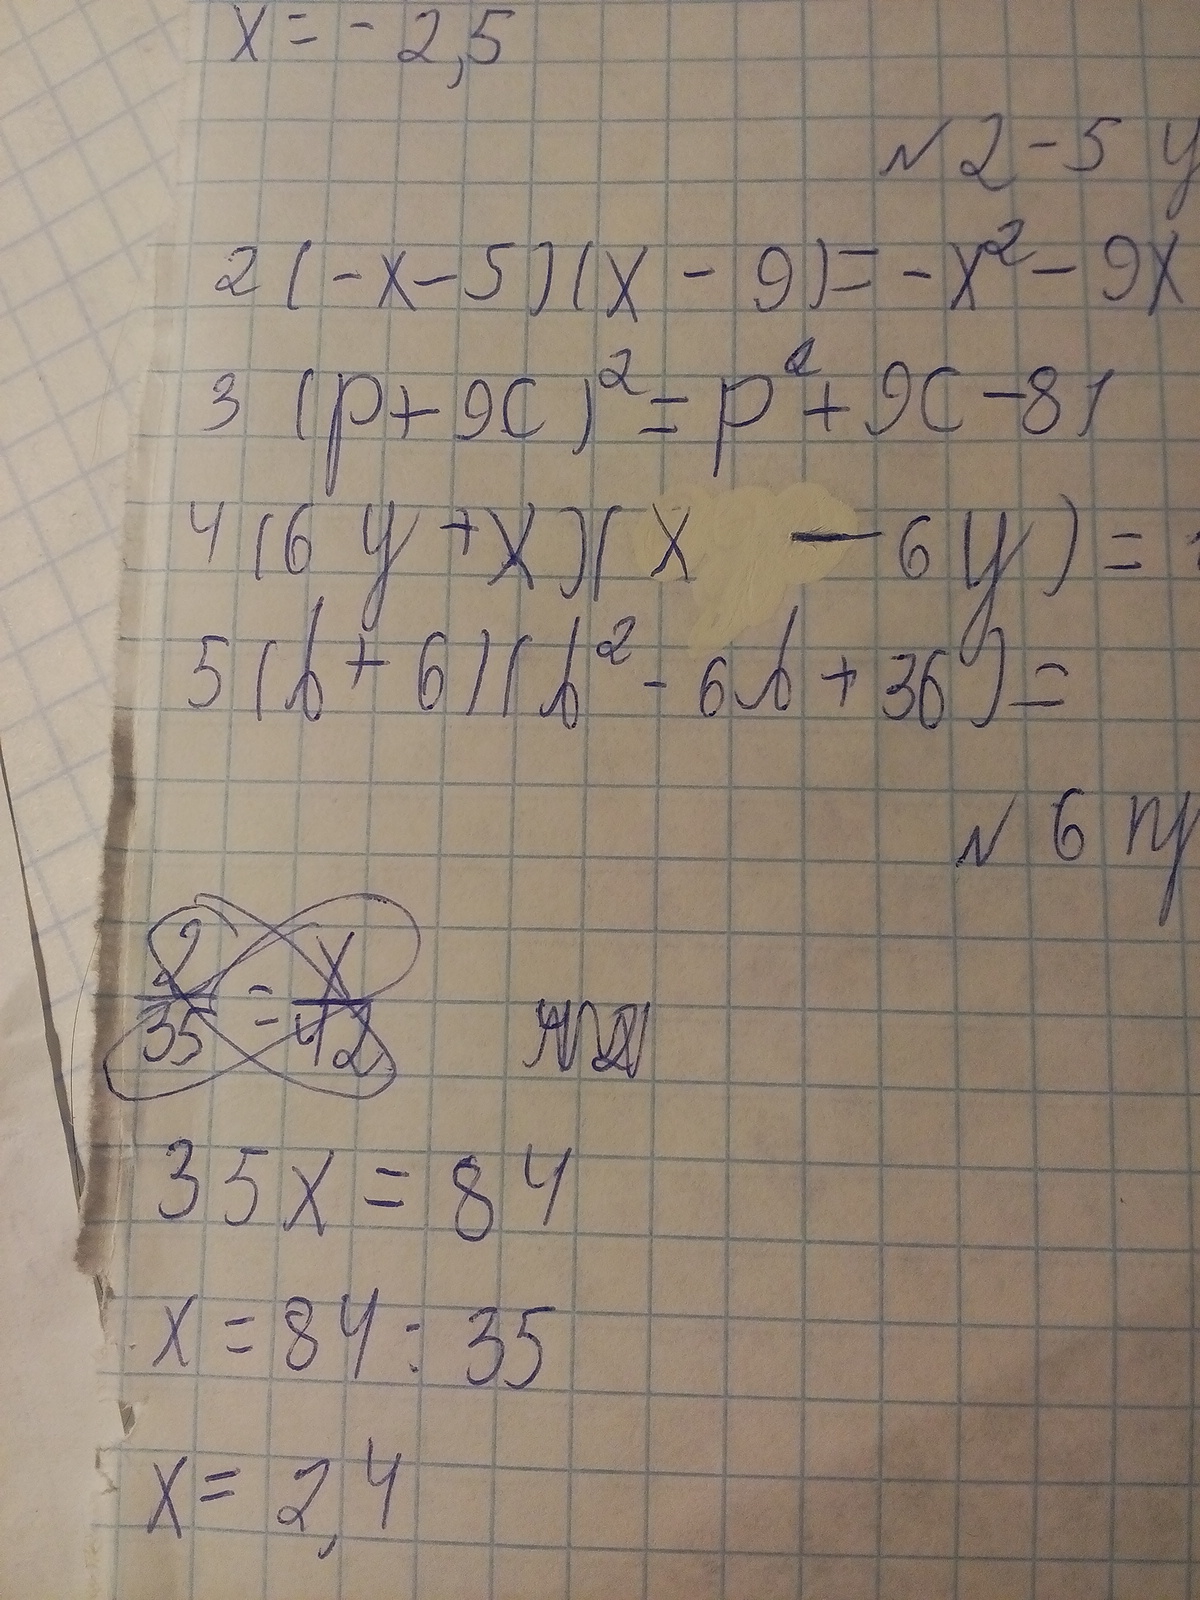 x = - 2,5
№ 2 - 5 у
2 (-x-5)(x - 9) = -x² - 9x
3 (p+9c)² = p² + 9c - 81
4 (6y + x)(x - 6y) =
5 (b + 6)(b² - 6b + 36) =
№ 6 пр
2/35 = x/42
35x = 84
x = 84 : 35
x = 2,4